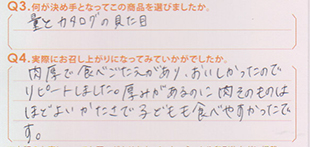 Q3. 何が決め手となってこの商品を選びましたか。
量とカタログの見た目
Q4. 実際にお召し上がりになってみていかがでしたか。
肉厚で食べごたえがあり、おいしかったので
リピートしました。厚みがあるのに肉そのものは
ほどよいかたさで子どもも食べやすかったで
す。